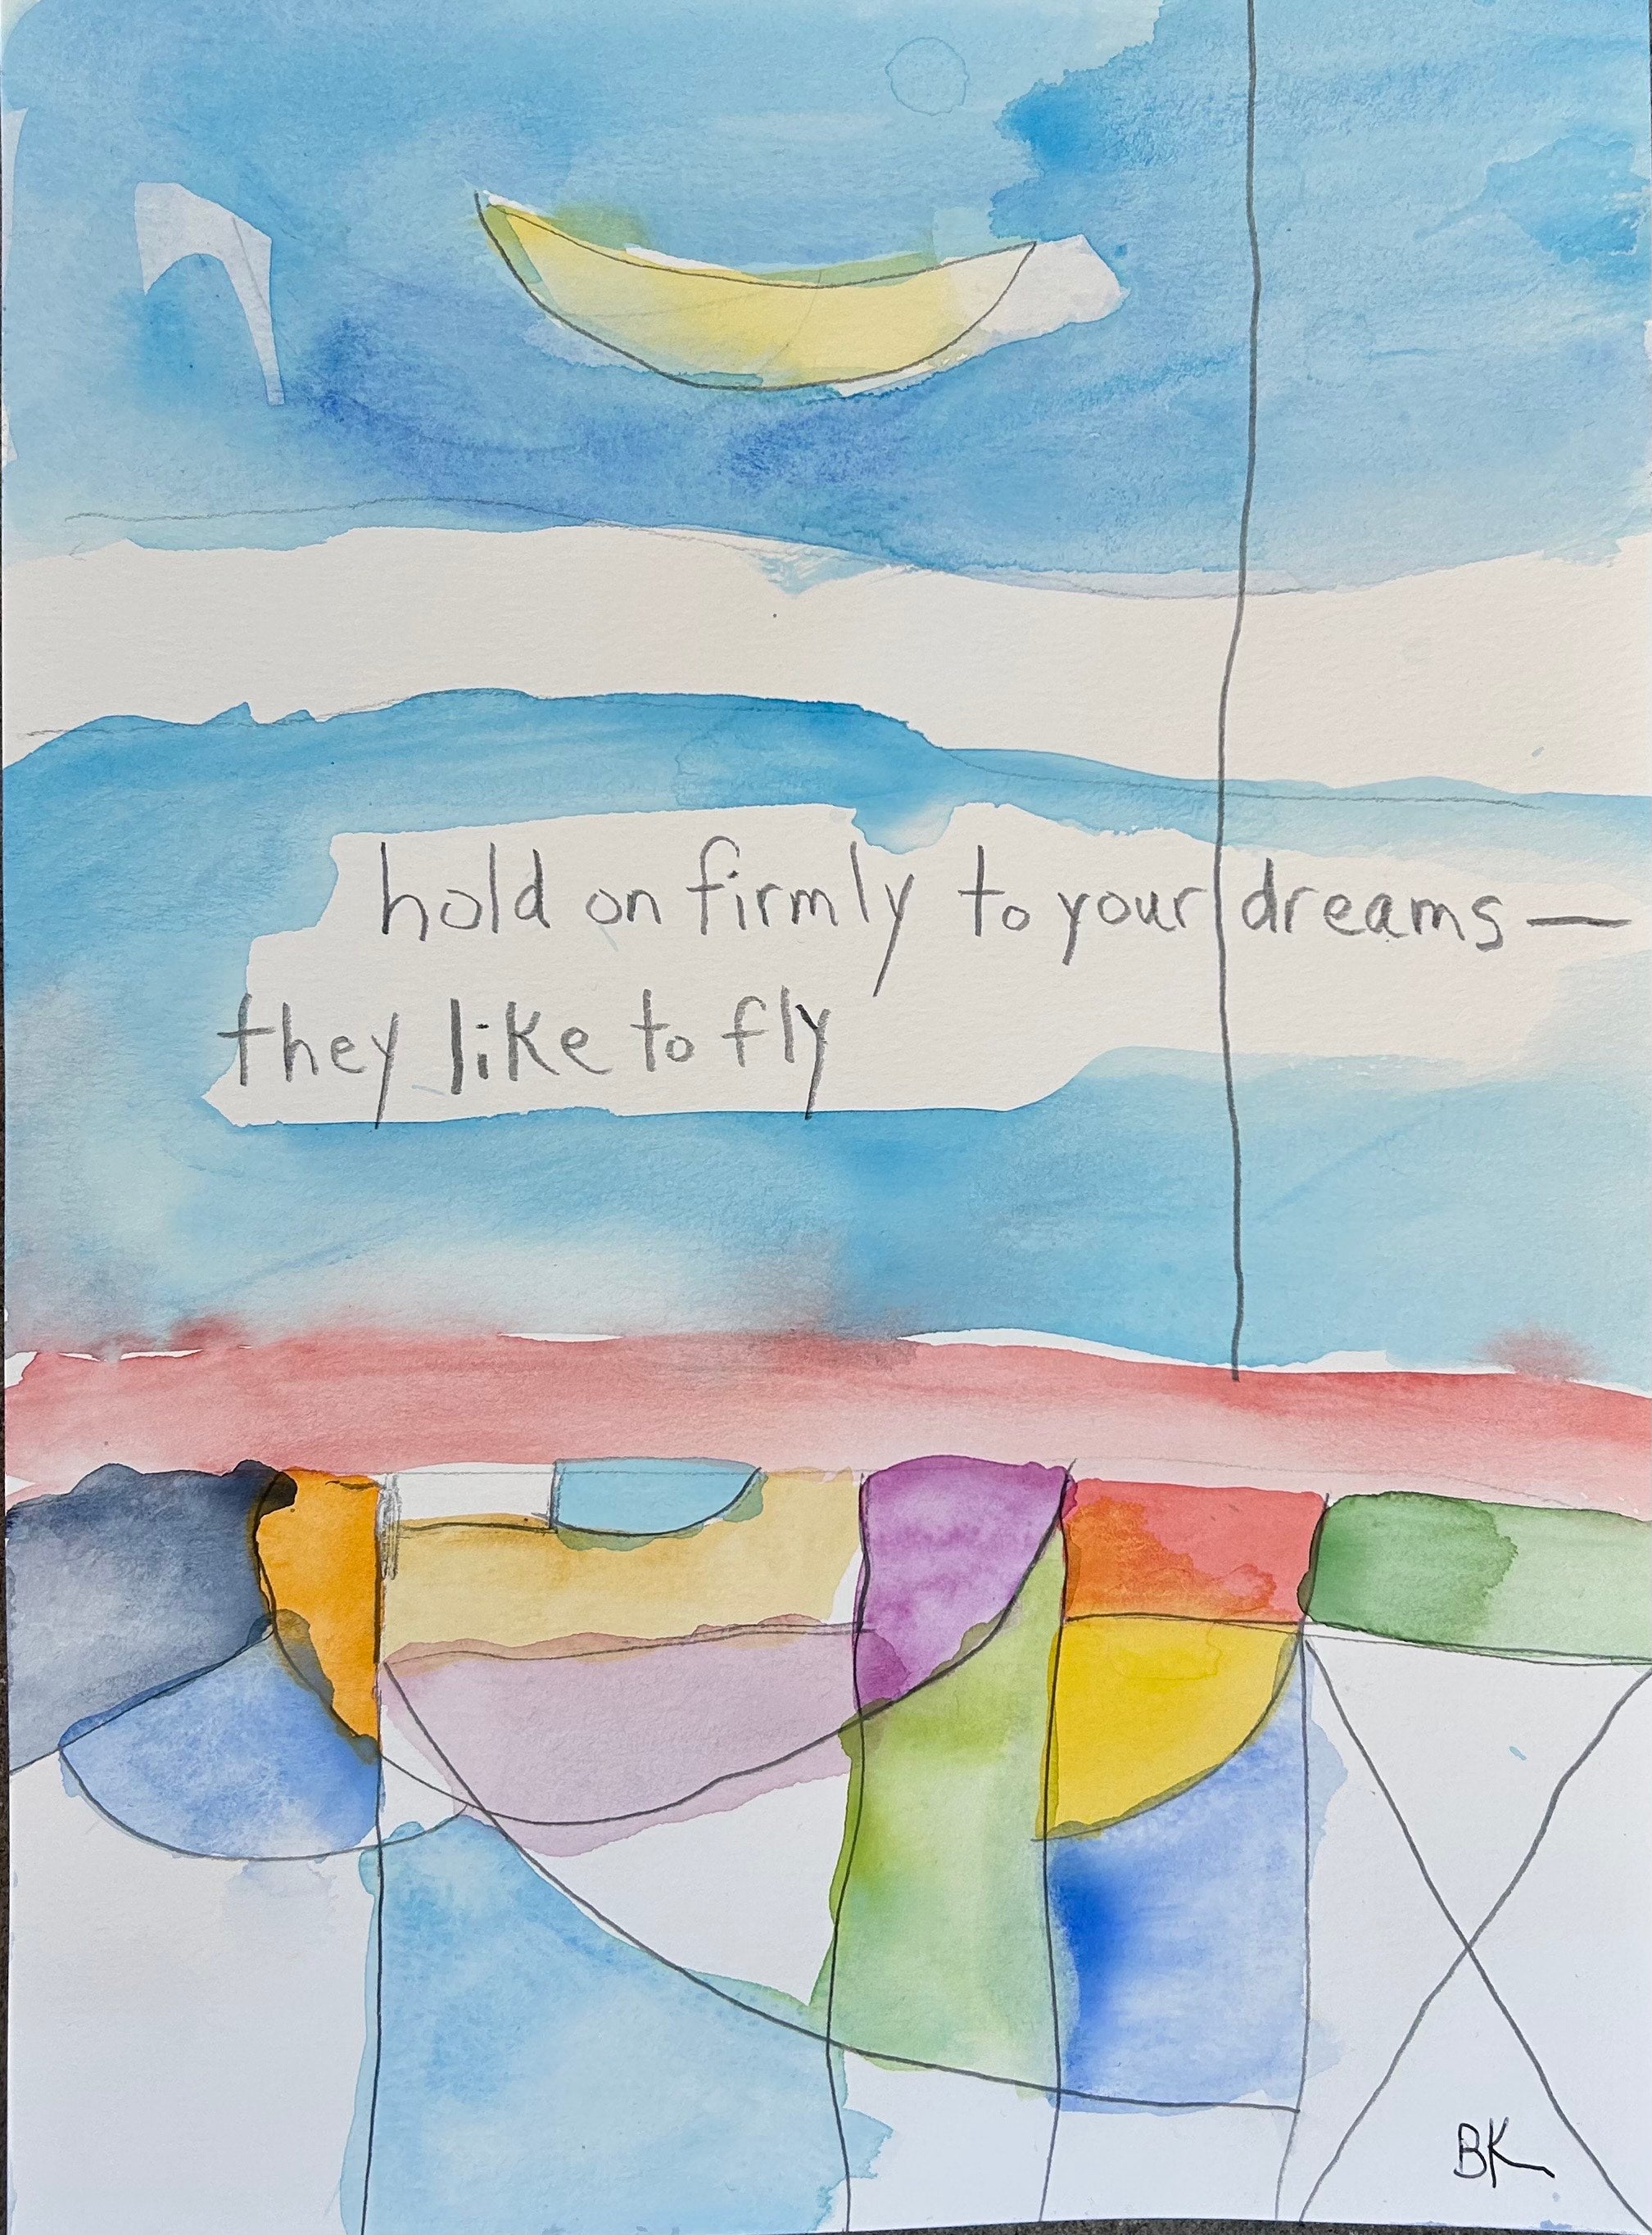 hold on firmly to your dreams—
they like to fly
BK